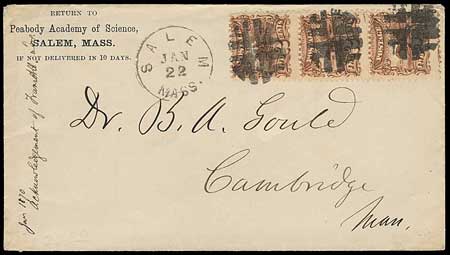 RETURN TO
Peabody Academy of Science,
SALEM, MASS.
IF NOT DELIVERED IN 10 DAYS.
SALEM
JAN
22
MASS.
Dr. B. A. Gould
Cambridge
Mass.
Jan 1870
Acknowledgement of